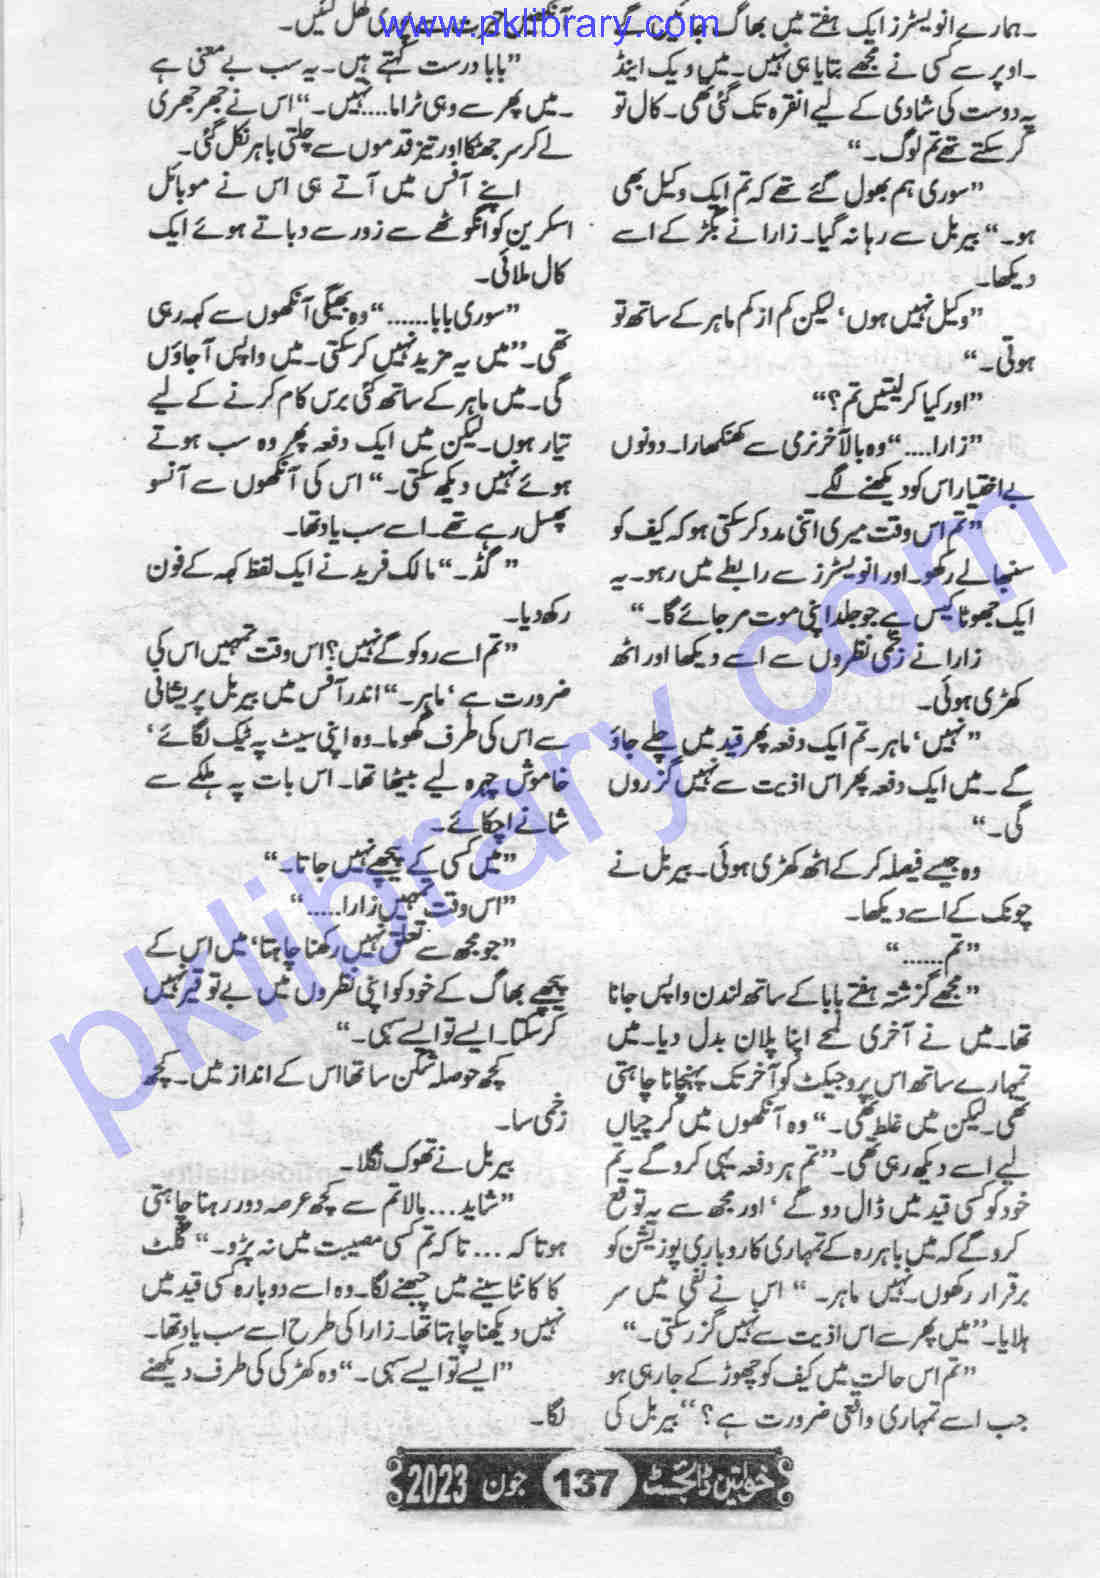 www.pklibrary.com
ہمارے انویسٹرز ایک ہفتے میں بھاگ جائیں گے
۔اوپر سے کسی نے مجھے بتایا ہی نہیں۔ میں ویک اینڈ
پہ دوست کی شادی کے لیے انقرہ تک گئی تھی۔ کال تو
کر سکتے تھے تم لوگ۔“
”سوری ہم بھول گئے تھے کہ تم ایک وکیل بھی
ہو۔“ بیربل سے رہا نہ گیا۔ زارا نے بگڑ کے اسے
دیکھا۔
”وکیل نہیں ہوں‘ لیکن کم از کم ماہر کے ساتھ تو
ہوتی۔“
”اور کیا کر لیتیں تم؟“
”زارا....“ وہ بالآخر نرمی سے کھنکھارا۔ دونوں
بے اختیار اس کو دیکھنے لگے۔
”تم اس وقت میری اتنی مدد کر سکتی ہو کہ کیف کو
سنبھالے رکھو۔ اور انویسٹرز سے رابطے میں رہو۔ یہ
ایک جھوٹا کیس ہے جو جلد اپنی موت مر جائے گا۔“
زارا نے زخمی نظروں سے اسے دیکھا اور اٹھ
کھڑی ہوئی۔
”نہیں‘ ماہر۔ تم ایک دفعہ پھر قید میں چلے جاؤ
گے۔ میں ایک دفعہ پھر اس اذیت سے نہیں گزروں
گی۔“
وہ جیسے فیصلہ کر کے اٹھ کھڑی ہوئی۔ بیربل نے
چونک کے اسے دیکھا۔
”تم......“
”مجھے گزشتہ ہفتے بابا کے ساتھ لندن واپس جانا
تھا۔ میں نے آخری لمحے اپنا پلان بدل دیا۔ میں
تمہارے ساتھ اس پروجیکٹ کو آخر تک پہنچانا چاہتی
تھی۔ لیکن میں غلط تھی۔“ وہ آنکھوں میں کرچیاں
لیے اسے دیکھ رہی تھی۔ ”تم ہر دفعہ یہی کرو گے۔ تم
خود کو کسی قید میں ڈال دو گے‘ اور مجھ سے یہ توقع
کرو گے کہ میں باہر رہ کے تمہاری کاروباری پوزیشن کو
برقرار رکھوں۔ نہیں ماہر۔“ اس نے نفی میں سر
ہلایا۔ ”میں پھر سے اس اذیت سے نہیں گزر سکتی۔“
”تم اس حالت میں کیف کو چھوڑ کے جا رہی ہو
جب اسے تمہاری واقعی ضرورت ہے؟“ بیربل کی
آنکھیں حیرت سے پوری کھل گئیں۔
”بابا درست کہتے ہیں۔ یہ سب بے معنی ہے
۔ میں پھر سے وہی ٹراما.... نہیں۔“ اس نے جھرجھری
لے کر سر جھٹکا اور تیز قدموں سے چلتی باہر نکل گئی۔
اپنے آفس میں آتے ہی اس نے موبائل
اسکرین کو انگوٹھے سے زور سے دباتے ہوئے ایک
کال ملائی۔
”سوری بابا......“ وہ بھیگی آنکھوں سے کہہ رہی
تھی۔ ”میں یہ مزید نہیں کر سکتی۔ میں واپس آ جاؤں
گی۔ میں ماہر کے ساتھ کئی برس کام کرنے کے لیے
تیار ہوں۔ لیکن میں ایک دفعہ پھر وہ سب ہوتے
ہوئے نہیں دیکھ سکتی۔“ اس کی آنکھوں سے آنسو
پھسل رہے تھے۔ اسے سب یاد تھا۔
”گڈ۔“ مالک فرید نے ایک لفظ کہہ کے فون
رکھ دیا۔
”تم اسے روکو گے نہیں؟ اس وقت تمہیں اس کی
ضرورت ہے‘ ماہر۔“ اندر آفس میں بیربل پریشانی
سے اس کی طرف گھوما۔ وہ اپنی سیٹ پہ ٹیک لگائے‘
خاموش چہرہ لیے بیٹھا تھا۔ اس بات پہ ہلکے سے
شانے اچکائے۔
”میں کسی کے پیچھے نہیں جاتا۔“
”اس وقت تمہیں زارا.....“
”جو مجھ سے تعلق نہیں رکھنا چاہتا‘ میں اس کے
پیچھے بھاگ کے خود کو اپنی نظروں میں بے توقیر نہیں
کر سکتا۔ ایسے تو ایسے سہی۔“
کچھ حوصلہ شکن سا تھا اس کے انداز میں۔ کچھ
زخمی سا۔
بیربل نے تھوک نگلا۔
”شاید... بالا تم سے کچھ عرصہ دور رہنا چاہتی
ہو تا کہ... تا کہ تم کسی مصیبت میں نہ پڑو۔“ گلٹ
کا کانٹا سینے میں چبھنے لگا۔ وہ اسے دوبارہ کسی قید میں
نہیں دیکھنا چاہتا تھا۔ زارا کی طرح اسے سب یاد تھا۔
”ایسے تو ایسے سہی۔“ وہ کھڑکی کی طرف دیکھنے
لگا۔
خواتین ڈائجسٹ 137 جون 2023
pklibrary.com